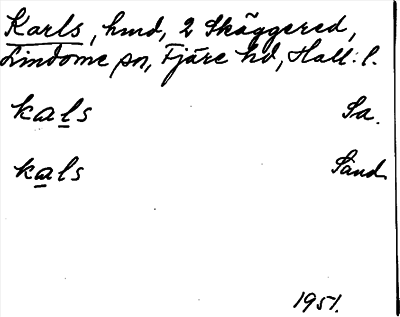 Karls, hmd, 2 Skäggered,
Lindome sn, Fjäre hd, Hall. l.
kals Sa.
kals Sand
1951.